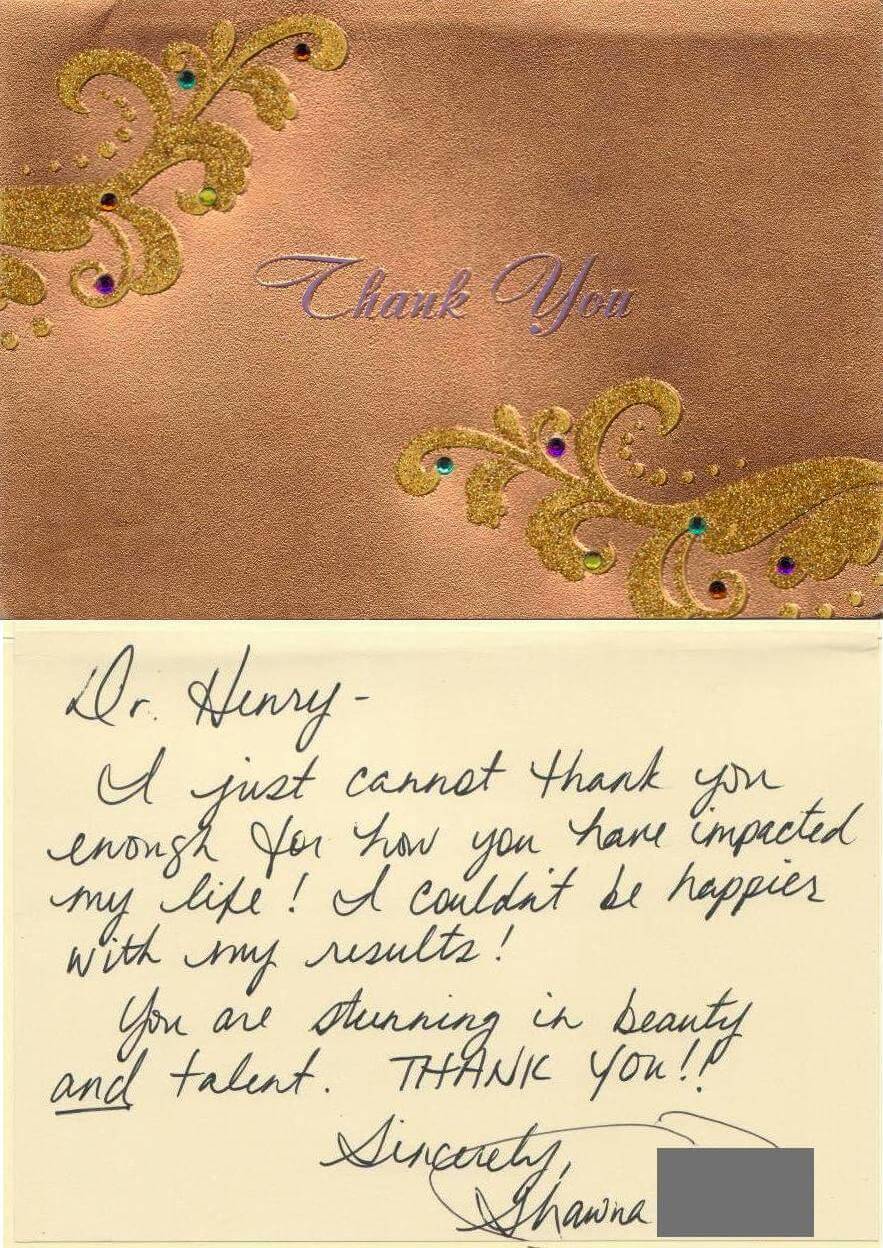 Thank You
Dr. Henry-
I just cannot thank you
enough for how you have impacted
my life! I couldn't be happier
with my results!
You are stunning in beauty
and talent. THANK YOU!!
Sincerely,
Shawna